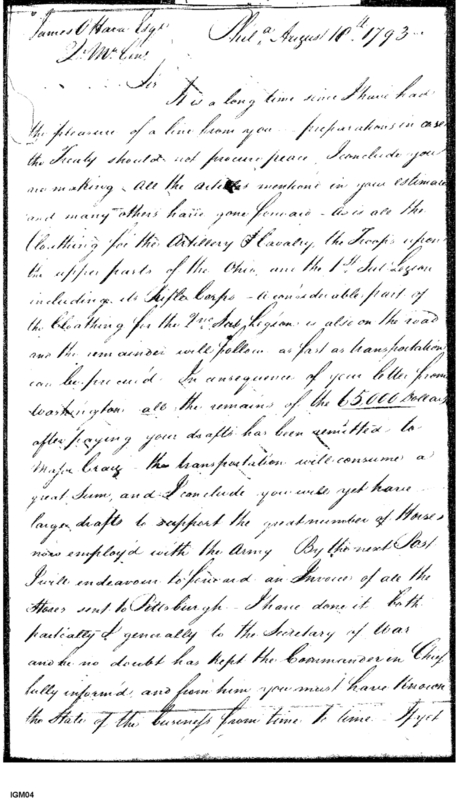 James O'Hara Esqr
Q. Mr. Genl
Phila. August 10th 1793
Sir
It is a long time since I have had
the pleasure of a line from you - preparations in case
the Treaty should not procure peace, I conclude you
are making - all the articles mentiond in your estimate
and many others have gone forward - as is all the
Cloathing for the Artillery & Cavalry, the Troops upon
the upper parts of the Ohio, and the 1st Sub Legion
including its Rifle Corps - a considerable part of
the Cloathing for the 2nd Sub Legion is also on the road
and the remainder will follow as fast as transportation
can be procur'd. In consequence of your letter from
Washington all the remains of the 65,000 Dollars
after paying your drafts has been remitted to
Major Craig - the transportation will consume a
great Sum, and I conclude you will yet have
larger drafts to support the great number of Horses
now employ'd with the Army By the next Post
I will endeavour to forward an Invoice of all the
Stores sent to Pittsburgh - I have done it both
partially & generally to the Secretary of War
and he no doubt has kept the Commander in Chief
fully inform'd, and from him you must have known
the State of the business from time to time - If yet
IGM04